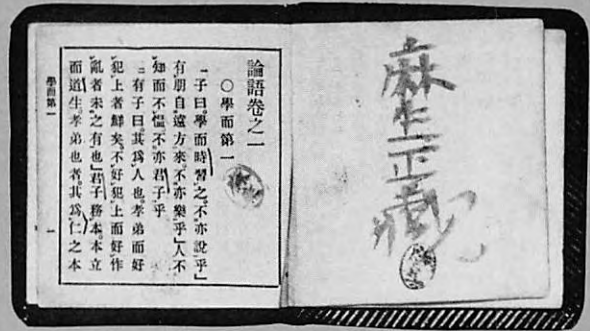 麻生正藏
論語卷之一
○學而第一
「子曰。學而時習之。不亦說乎」
有朋自遠方來。不亦樂乎」人不
知而不慍。不亦君子乎
「有子曰。其爲人也。孝弟而好
犯上者鮮矣。不好犯上而好作
亂者。未之有也」君子務本。本立
而道生。孝弟也者。其爲仁之本
學而第一
一